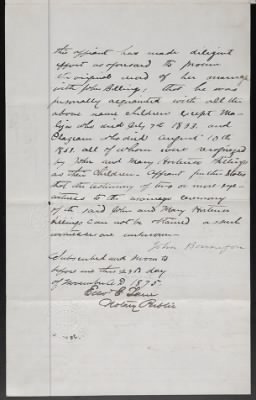 this affiant has made deligent
effort as aforesaid to procure
the original record of her marriage
with John Billings; that he was
personally acquainted with all the
above named children except
who died July 7th 1833. and
who died August 10th
1853. all of whom were recognized
by John and Mary Billings
as their children. Affiant further states
that the testimony of two or more eye
witnesses to the marriage ceremony
of the said John and Mary
Billings can not be obtained as such
witnesses are unknown.
John
Subscribed and sworn to
before me this 29th day
of November A.D. 1875
Notary Public